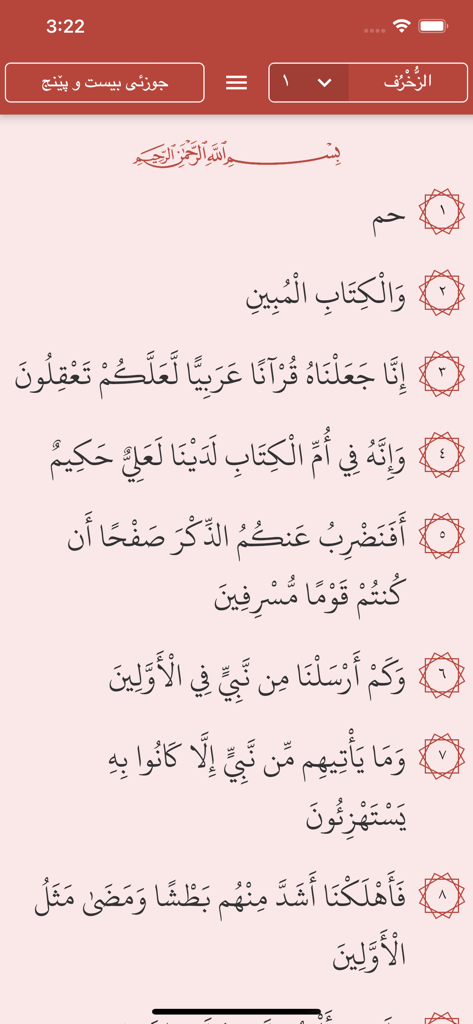 3:22
الزُّخْرُف ١ جوزئی بیست و پێنج
بِسْمِ اللَّهِ الرَّحْمَٰنِ الرَّحِيمِ
١ حم
٢ وَالْكِتَابِ الْمُبِينِ
٣ إِنَّا جَعَلْنَاهُ قُرْآنًا عَرَبِيًّا لَّعَلَّكُمْ تَعْقِلُونَ
٤ وَإِنَّهُ فِي أُمِّ الْكِتَابِ لَدَيْنَا لَعَلِيٌّ حَكِيمٌ
٥ أَفَنَضْرِبُ عَنكُمُ الذِّكْرَ صَفْحًا أَن
كُنتُمْ قَوْمًا مُّسْرِفِينَ
٦ وَكَمْ أَرْسَلْنَا مِن نَّبِيٍّ فِي الْأَوَّلِينَ
٧ وَمَا يَأْتِيهِم مِّن نَّبِيٍّ إِلَّا كَانُوا بِهِ
يَسْتَهْزِئُونَ
٨ فَأَهْلَكْنَا أَشَدَّ مِنْهُم بَطْشًا وَمَضَىٰ مَثَلُ
الْأَوَّلِينَ